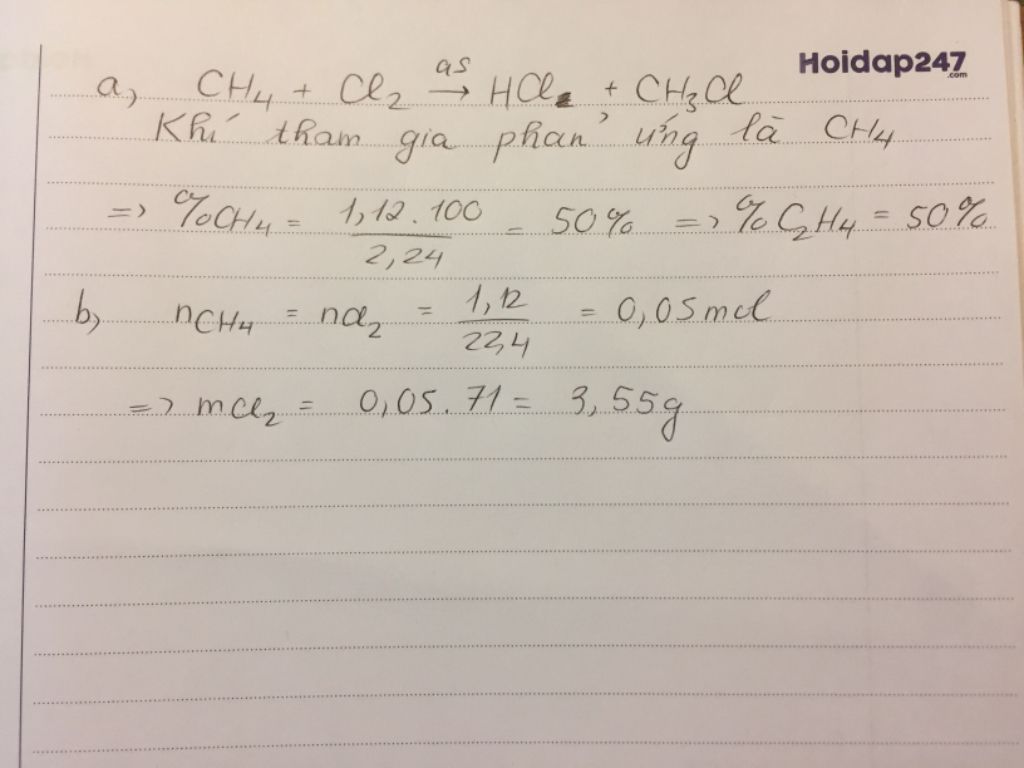 Hoidap247
.com
a, CH₄ + Cl₂ →(as) HCl + CH₃Cl
Khí tham gia phản ứng là CH₄
=> %CH₄ = 1,12.100 / 2,24 = 50% => %C₂H₄ = 50%
b, nCH₄ = nCl₂ = 1,12 / 22,4 = 0,05 mol
=> mCl₂ = 0,05.71 = 3,55g